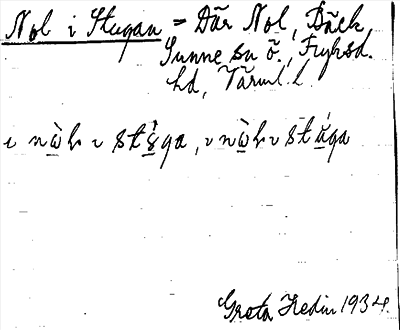 Nol i Stugan = Där Nol, Bäck
Sunne sn ö., Fryksd.
hd, Värml. l.
ı nὼl ı st, ı nὼl ı st
Greta Hedin 1934.